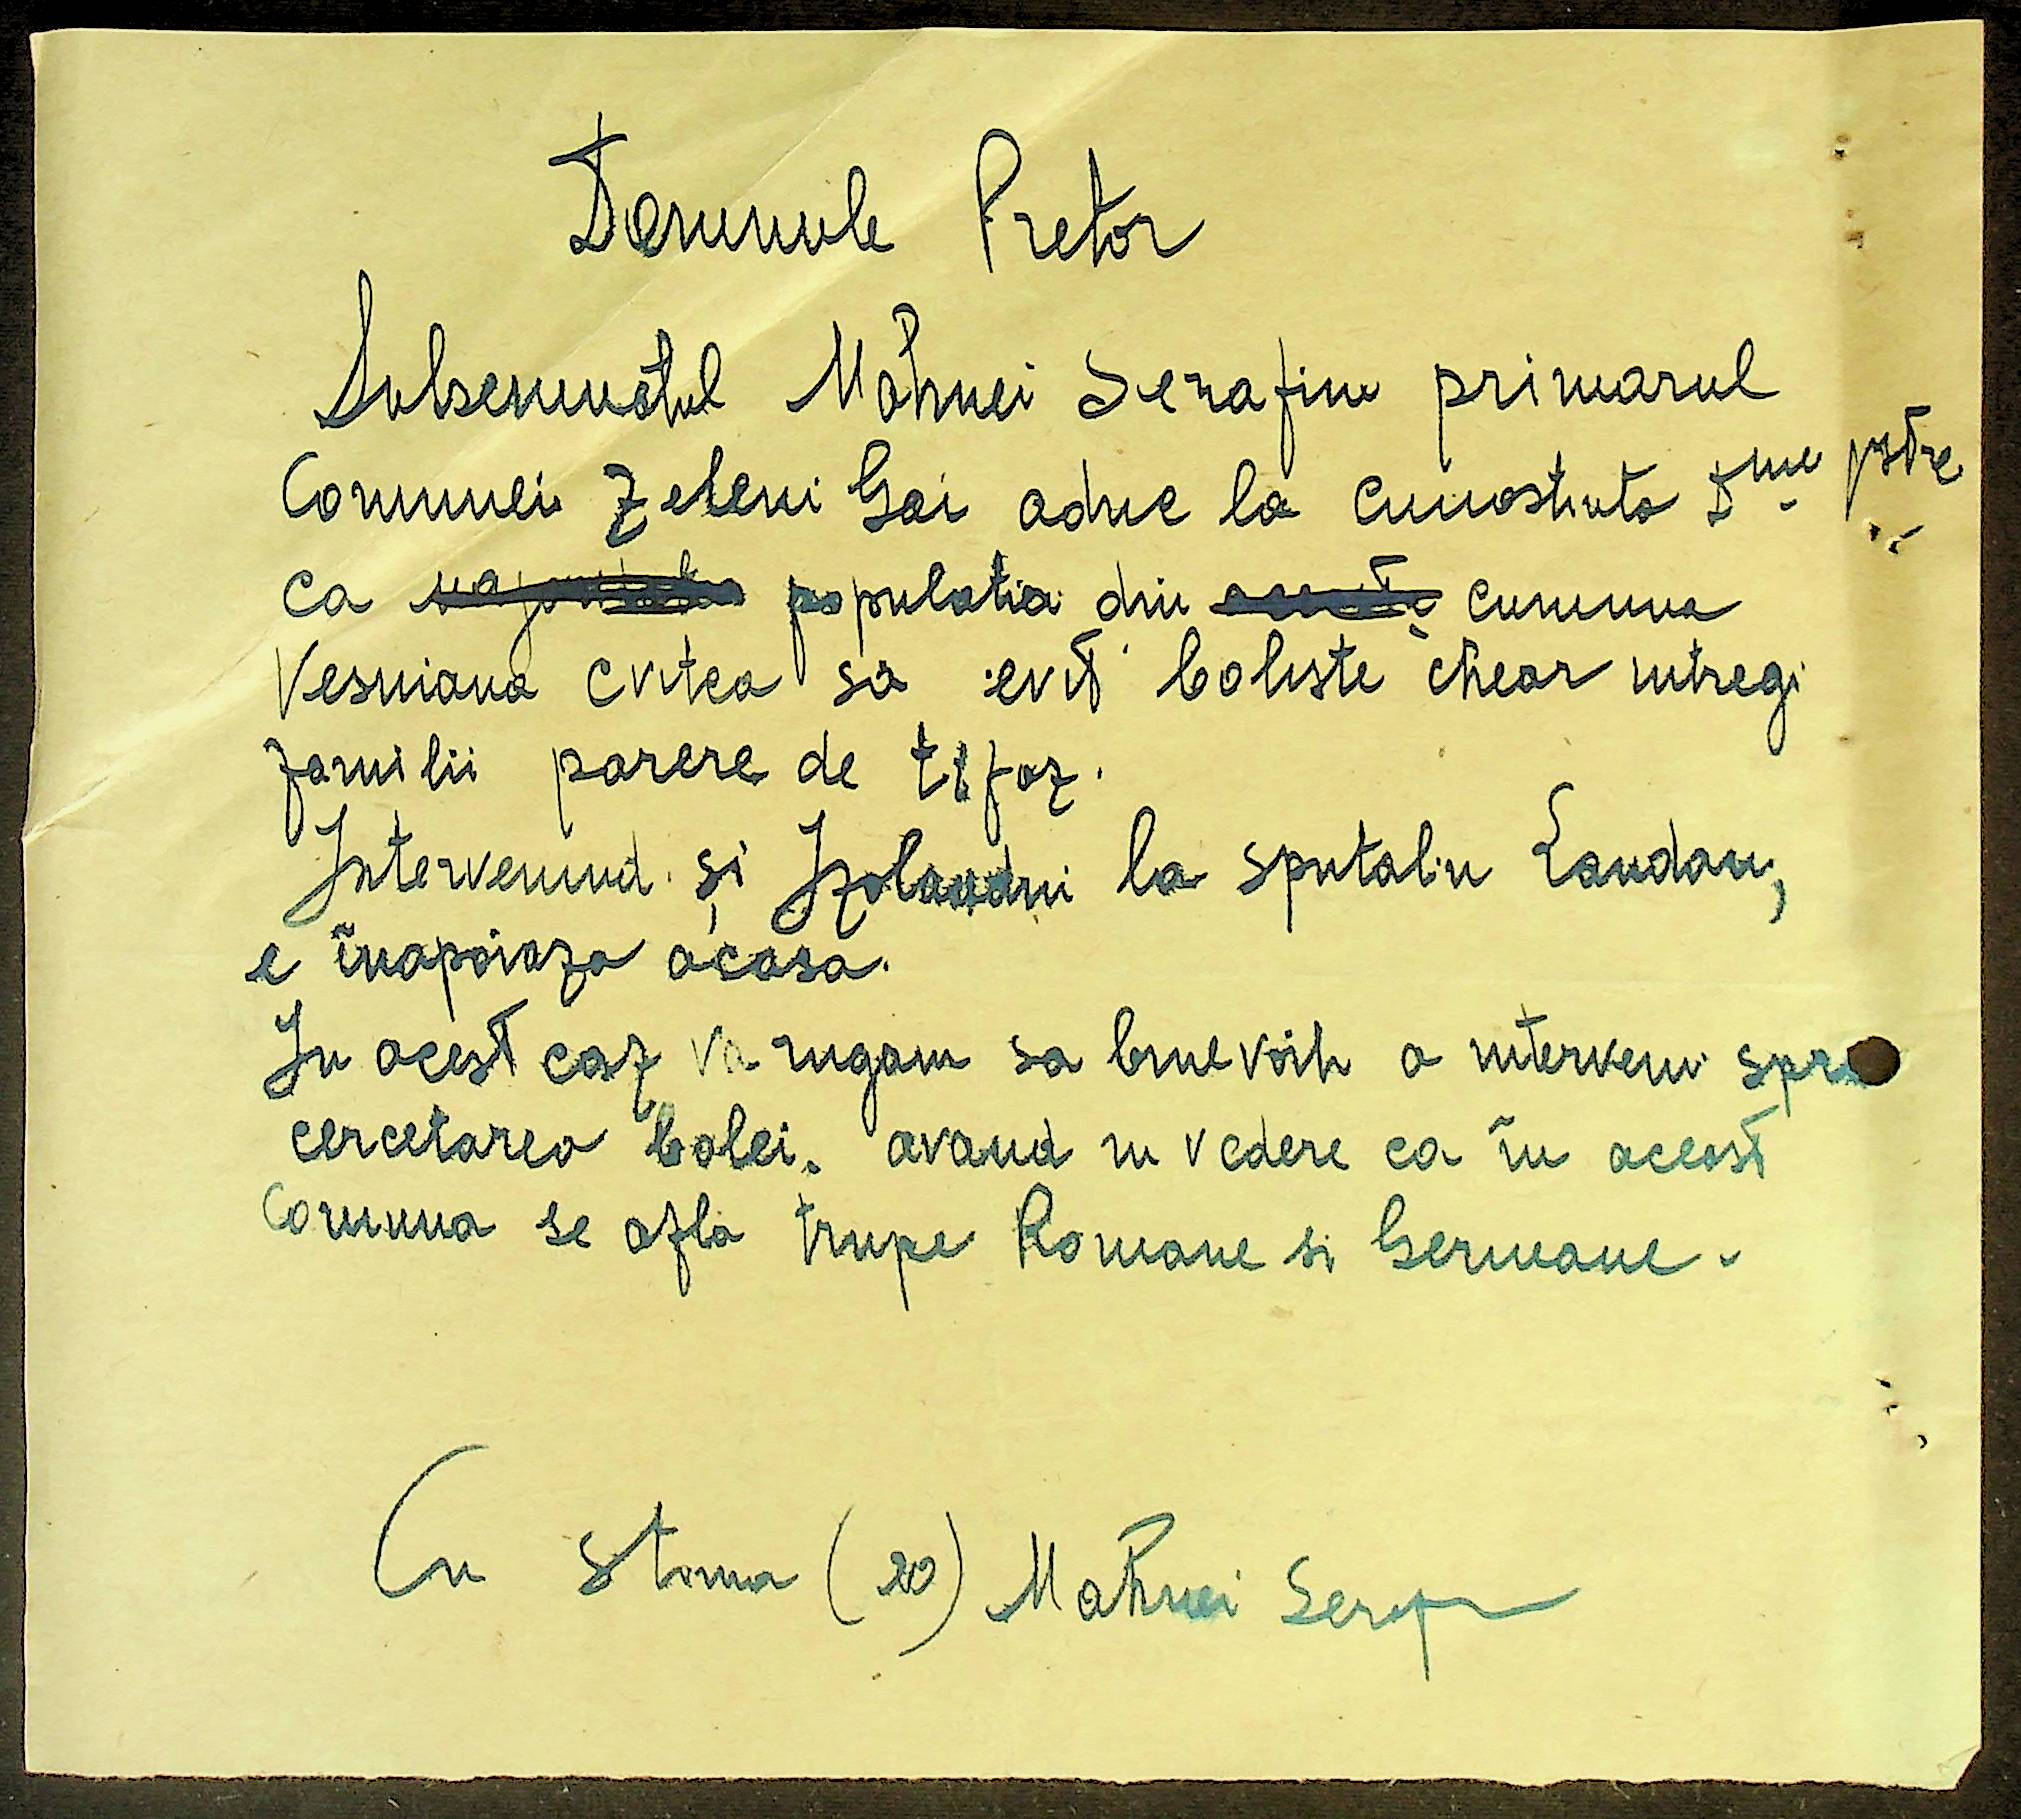 Domnule Pretor
Subsemnatul Mahnei Serafim primarul
Comunei Zeleni Gai aduc la cunostinta Dme pstre
ca populatia din comuna
Vesniana cvitca sa evit boliste chear intregi
familii parere de tifoz.
Intervenind și Izolandui la spitalin Landau,
e înapoiaza acasa.
In acest caz va rugam sa bunevoiti a interveni spre
cercetarea bolei. avand in vedere ca în aceast
Comuna se afla trupe Romane si Germane.
Cu stima (ss) Mahnei Seraf